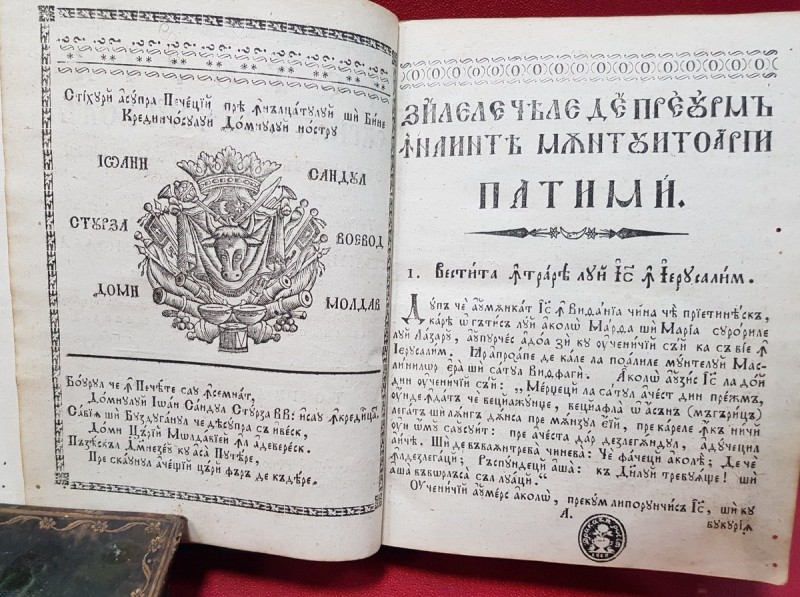 Стїхурй а҆супра Печецїй прѣ ꙟ҆нълцатулуй шѝ Бине
Крединчосулуй До́мнулуй но́стру
ІѠАНН
САНДУЛ
СТУРЗА
ВОЕВОД
ДОМН
МОЛДАВ
Бо́урул че ꙟ҆ Пече́те сау ꙟ҆семна́т,
До́мнулуй Іѡа́н Са́ндул Сту́рза ВВ: и҆сау ꙟ҆крединца́т.
Са́бїѧ шѝ Бузду́ганул че деасу́пра с и҆ве́ск,
До́мн Цѣ́рїй Молда́вїей ꙟ҆л а҆девере́ск.
Пъзѣ́скъл Дм҃незе́й ку а҆са̀ Путе́ре,
Пре ска́унул аче́щїй цѣ́рй фъ́ръ де къде́ре.
ЗИ́ЛЕЛЕ ЧѢ́ЛЕ ДЕ́ ПРЕ ꙊРМЪ
ꙞНАИНТѢ МѪНТꙊИТОАРІЙ
ПАТИМЙ.
1. Вести́та ꙟ҆тра́ре луй І҆с҃ ꙟ҆ І҆ерусали́м.
Дꙋпъ чѐ а҆у мѫнка́т І҆с҃ ꙟ҆ Виѳа́нїа чи́на чѣ̀ прїетинѣ́скъ,
ка́ре ѡ҆ гъти́съ луй а҆коло̀ Ма́рѳа шѝ Марі́а суро́риле
луй Ла́зару, а҆у пурче́с а҆до́а зѝ ку оу҆чени́чїй съ́й ка съ ві́е ꙟ҆
І҆ерусали́м. І҆аръ а҆про́апе де ка́ле ла по́алиле му́нтелуй Мас-
ли́нилѡр є҆ра̀ шѝ са́тул Виѳфа́гй. А҆коло̀ а҆у зи́с І҆с҃ ла до́й
дин оу҆чени́чїй съ́й: „Ме́рџецй ла са́тул аче́ст дин пре́жмъ,
оу҆нде ꙟ҆да́тъ че вецй а҆жу́нџе, вецй а҆фла̀ ѡ҆ а҆си́нъ (мъга́рицъ)
лега́тъ шѝ лѫ́нгъ дѫ́нса пре мѫ́нзул є҆́й, пре ка́реле ꙟ҆къ ни́чй
оу҆н ѡ҆м нꙋ сау суи́т: пре аче́ста да́р дезлегѫ́ндул, а҆ду́чецил
а҆и́че. Шѝ де въ ва̀ ꙟ҆нтреба̀ чинева̀: Чѐ фа́чецй а҆коло̀; Де чѐ
ꙟ҆л дезлега́цй; Ръспу́ндецй а҆ша̀: къ До́мнулуй требу́ѧще! шѝ
а҆ша̀ въ ва̀ лъса̀ съл луа́цй.“
Оу҆чени́чїй а҆у ме́рс а҆коло̀, преку́м ли порунчи́съ І҆с҃, шѝ ку
А.
букурі́ѧ